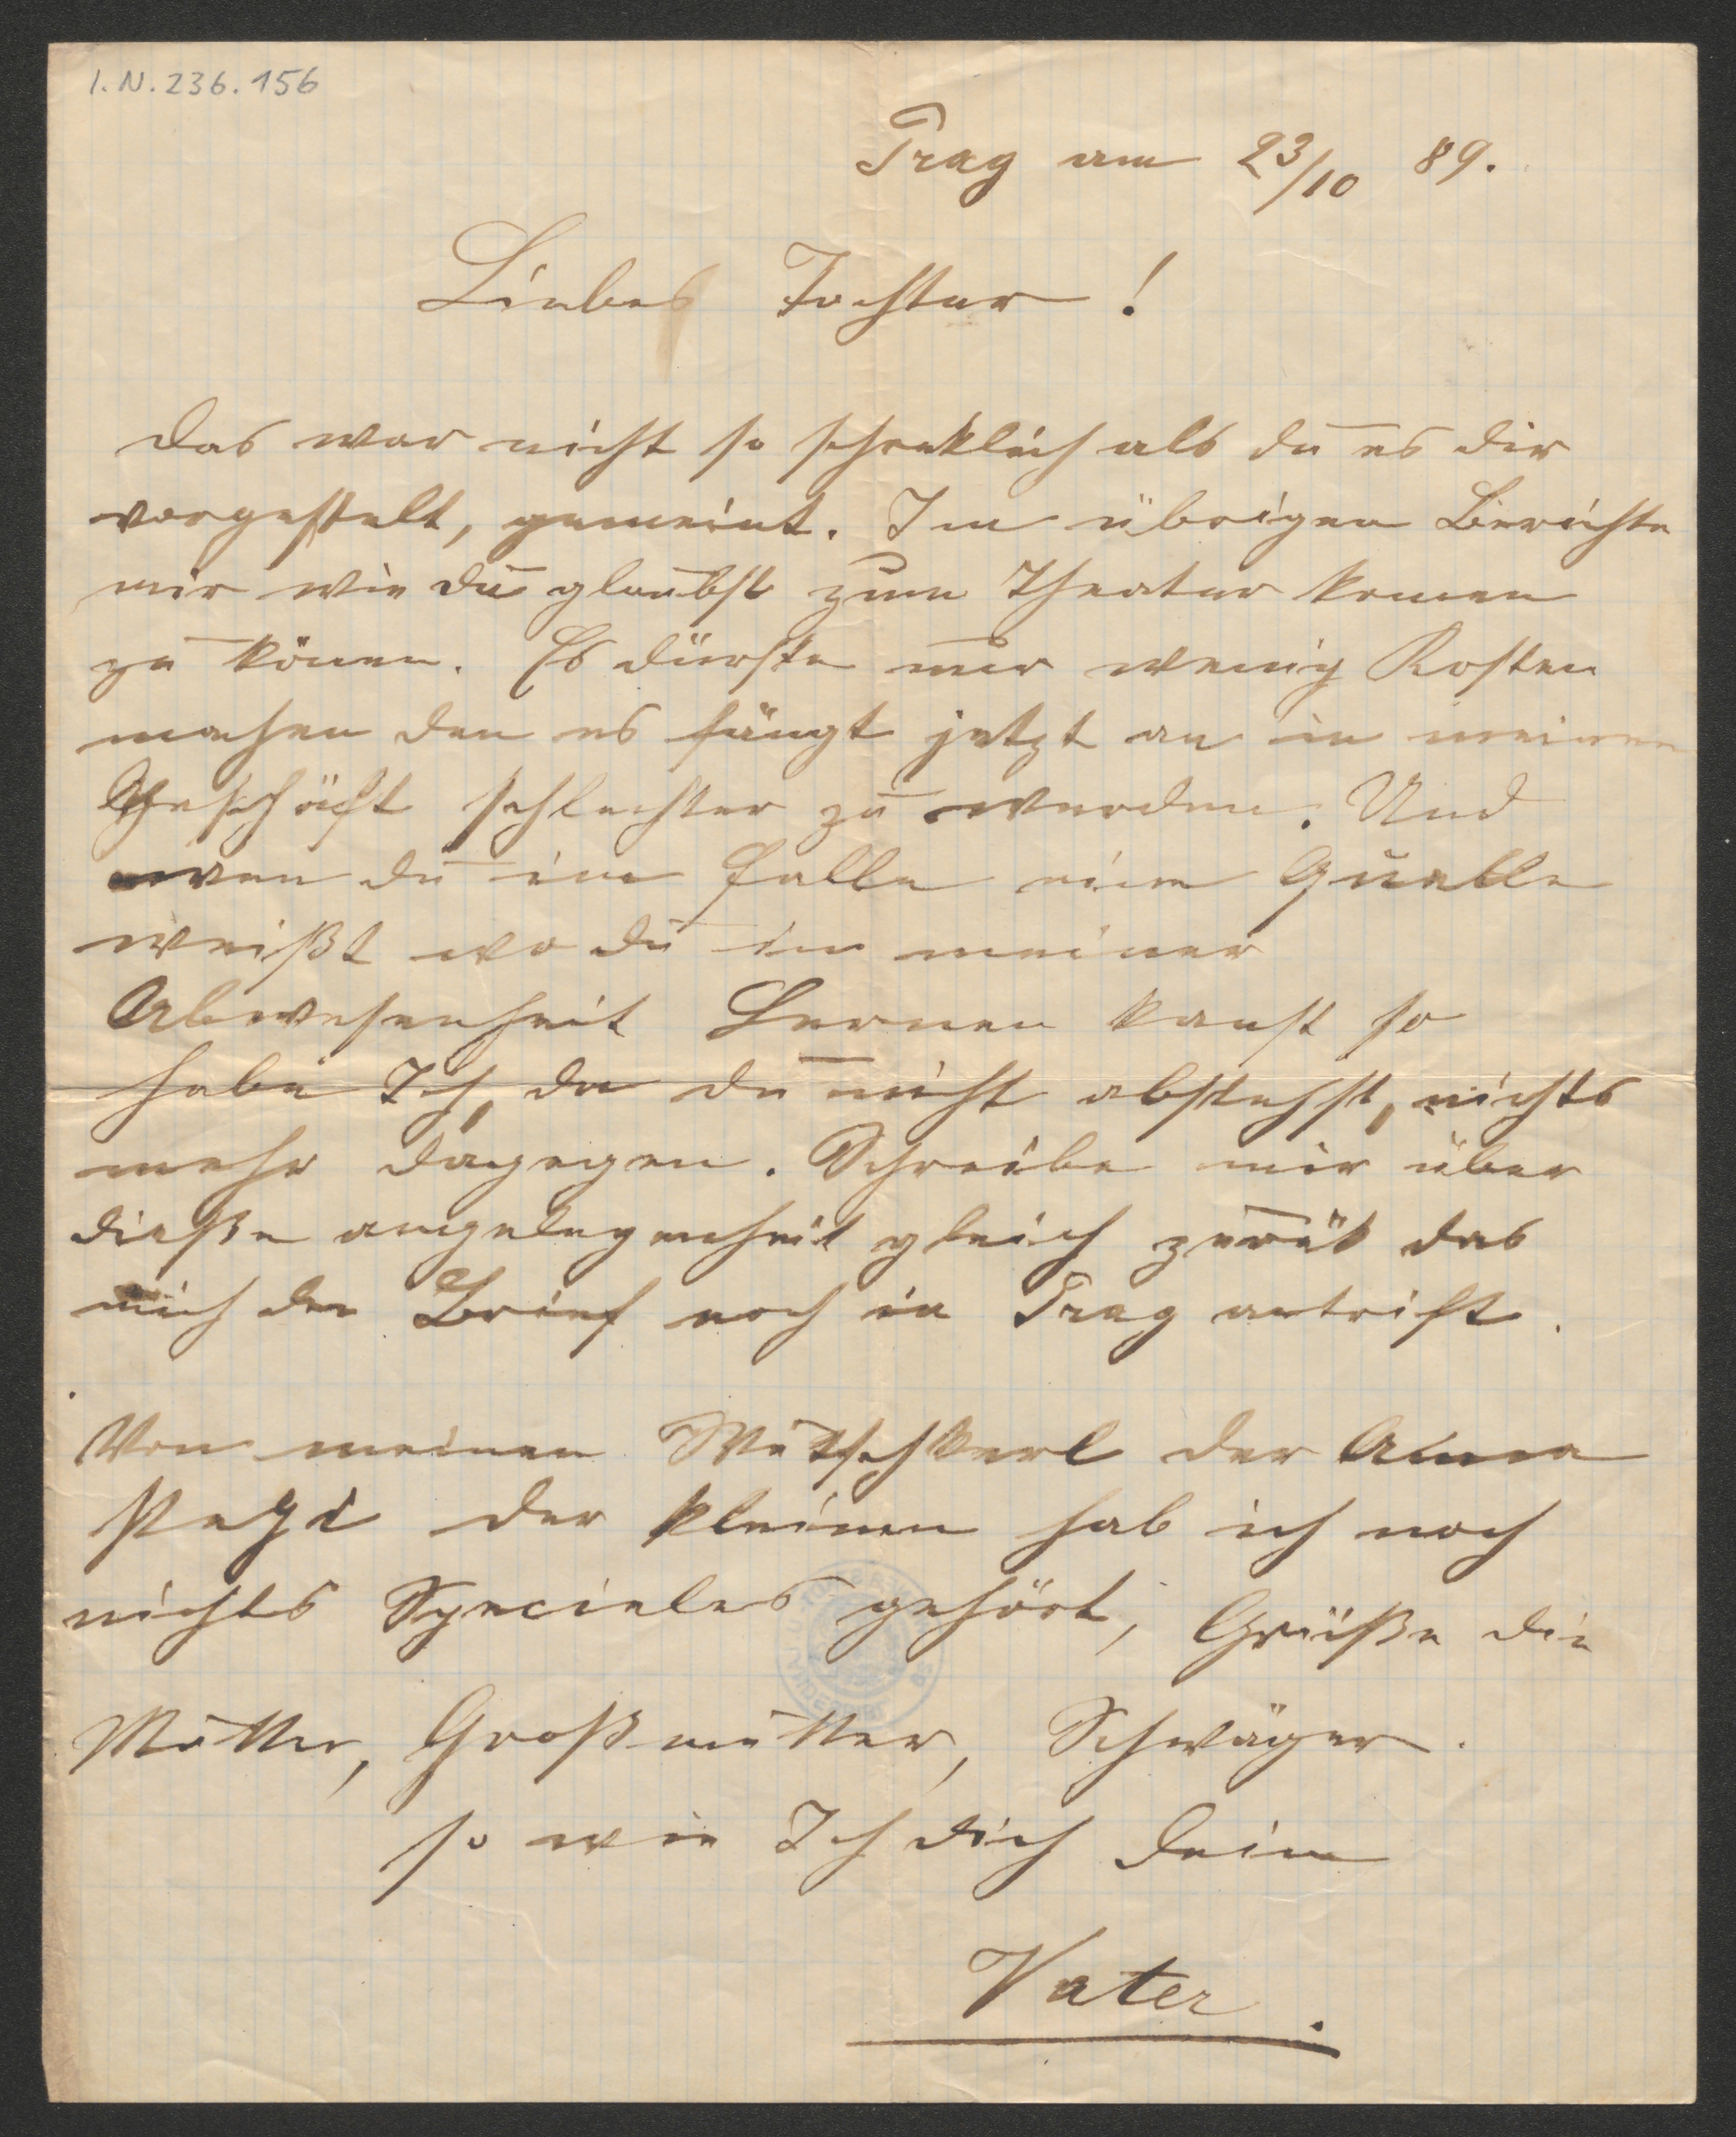 I.N. 236.156
Prag am 23/10 89.
Liebes Tochter!
das war nicht so schreklich als du es dir
vorgestelt, gemeint. Im übrigen Berichte
mir wie du glaubst zum Theater komen
zu könen. Es dürfte nur wenig Kosten
machen den es fängt jetzt an in meinen
Geschäft schlechter zu werden. Und
wen du im falle eine Quelle
weißt wo du in meiner
Abwesenheit Lernen kanst so
habe Ich, da du nicht abstehst, nichts
mehr dagegen. Schreibe mir über
dieße angelegenheit gleich zurük das
mich der Brief noch in Prag antrift.
Von meinen der Anna
der kleinen hab ich noch
nichts Specieles gehört, Grüße die
Mutter, Großmutter, Schwäger.
so wie Ich dich dein
Vater.